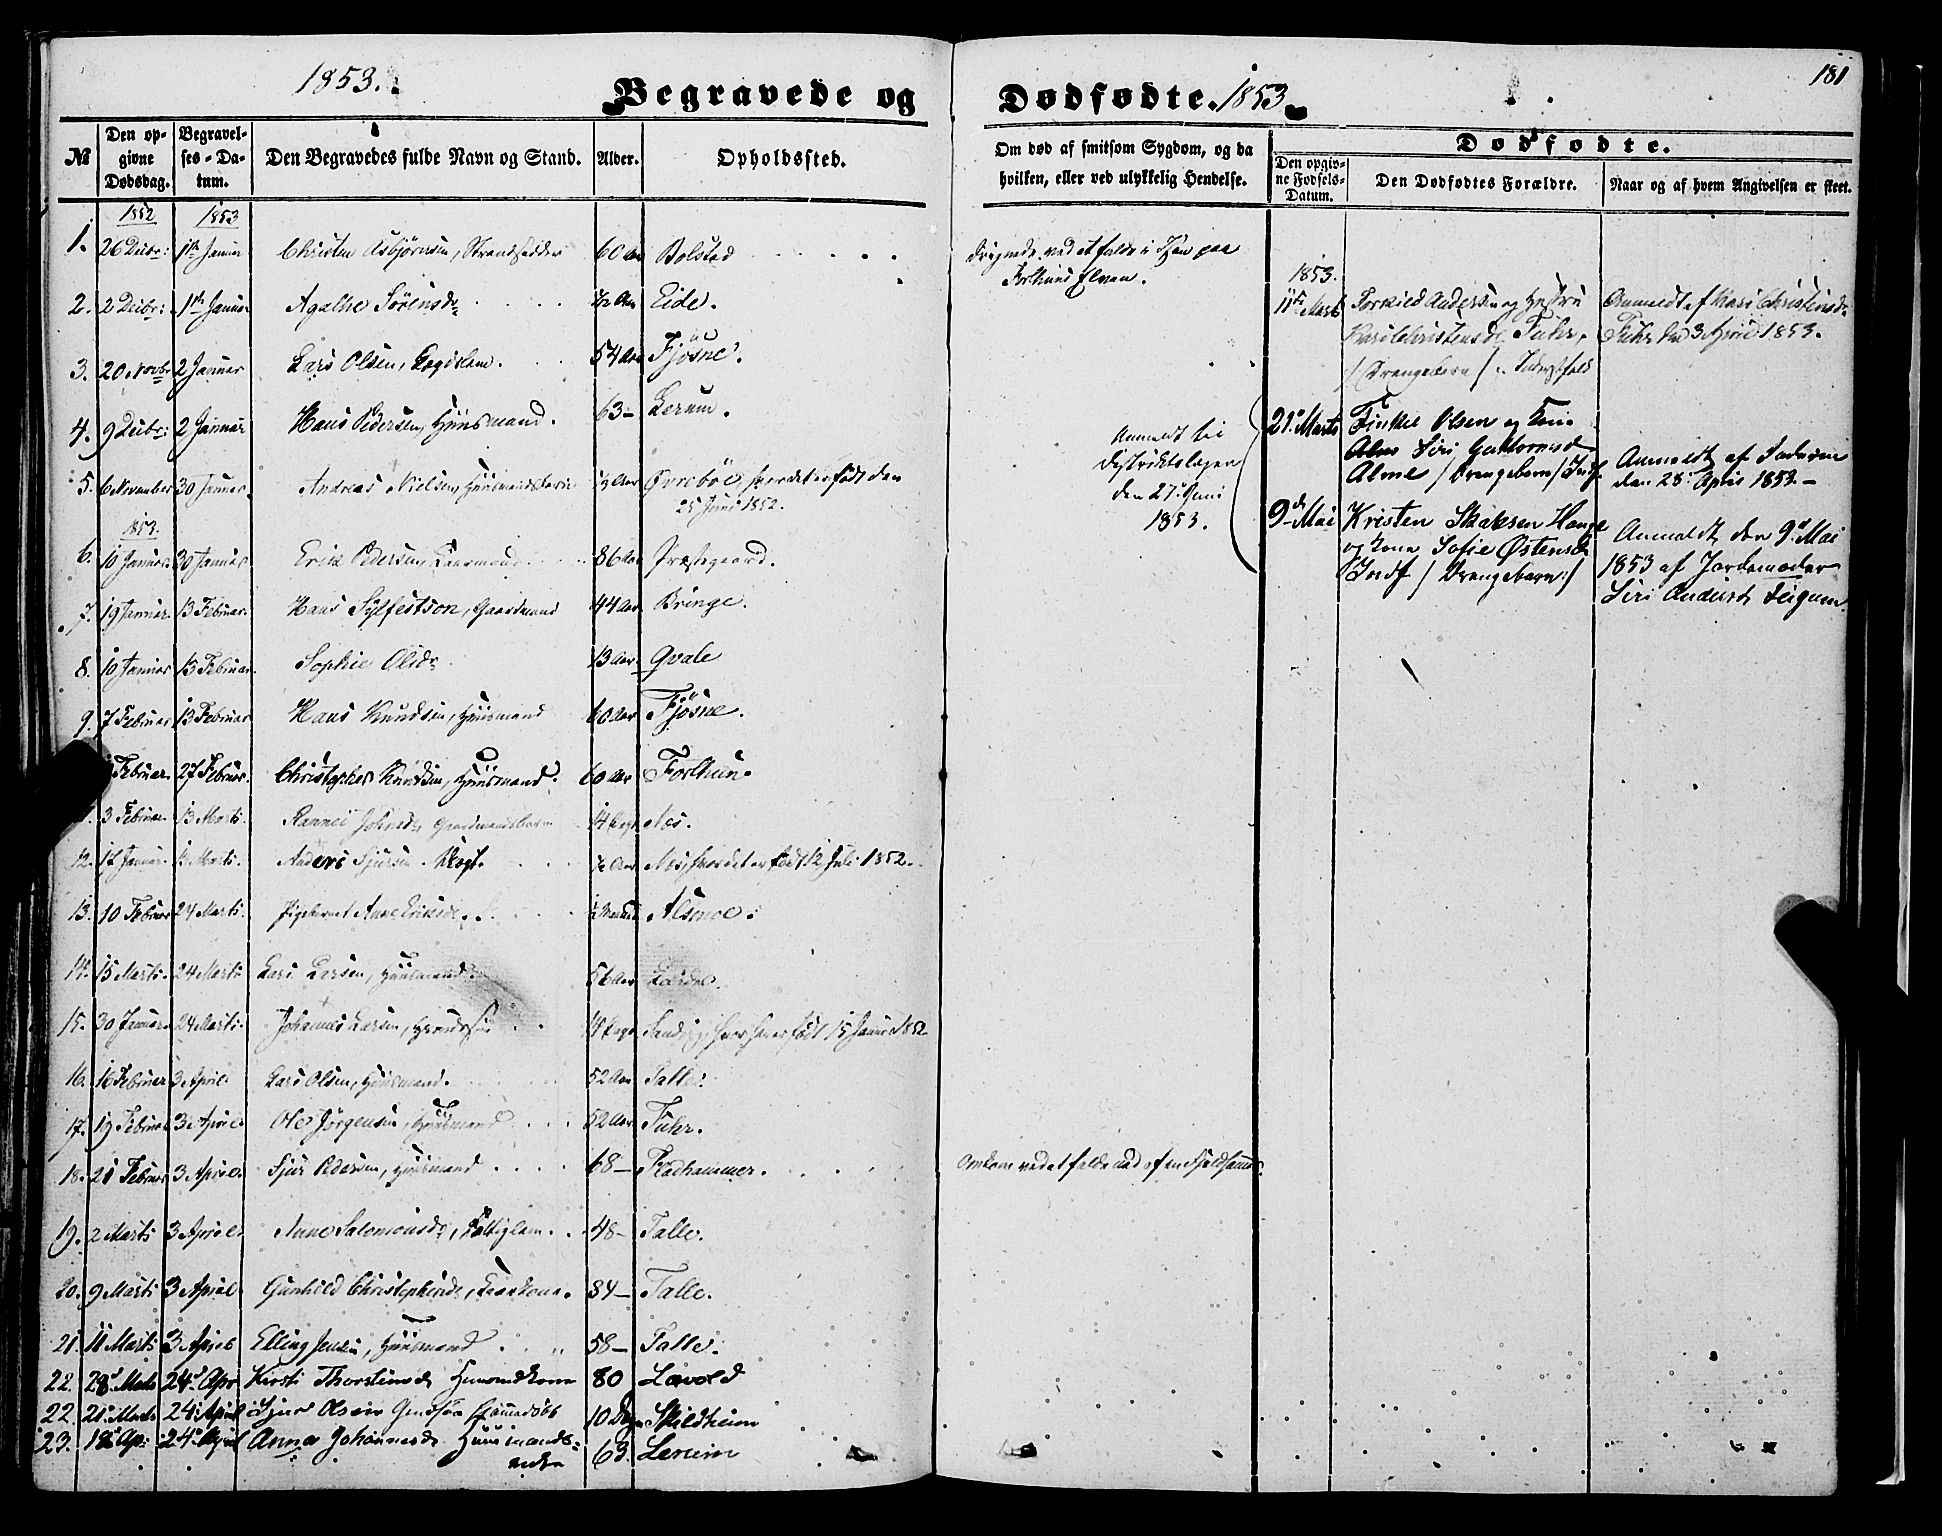 1853.
Begravede og
Dødfødte. 1853
181
№
Den opgivne Dødsdag.
Begravelses-Datum.
Den Begravedes fulde Navn og Stand.
Alder.
Opholdssted.
Om død af smitsom Sygdom, og da
hvilken, eller ved ulykkelig Hendelse.
Dødfødte.
Den opgivne Fødsels-Datum.
Den Dødfødtes Forældre.
Naar og af hvem Angivelsen er skeet.
1852 1853
1. 26 Decbr: 1ste Januar Christen Asbjørnsen, Strandsidder 60 Aar Bolstad
2. 2 Decbr: 1ste Januar Agathe Sørensd. ½ Aar Eide.
3. 20 Novbr. 2 Januar Lars Olsen, Lægdslem. 54 Aar Fjøsne.
4. 9 Decbr: 2 Januar Hans Pedersen, Huusmand. 63 – Lerum.
5. 6 November 30 Januar Andreas Nielsen, Huusmandsbarn ½ Aar Øvrebøe, hvor det er født den
25 Juni 1852.
1853.
6. 10 Januar 30 Januar Erik Pedersen, Kaarmand 86 Aar Præstegaard.
7. 19 Januar 13 Februar Hans Sylfestson, Gaardmand 44 Aar Bringe.
8. 10 Januar 13 Februar Sophie Olsd. 13 Aar Qvale
9. 7 Februar 13 Februar Hans Knudsen, Huusmand 60 Aar Fjøsne.
Februar 27 Februar Christopher Knudsen, Huusmand. 60 Aar Forthun.
3 Februar 13 Marts Johnsd. Gaardmandsbarn 14 Næs.
12. 17 Januar Marts. Anders Sjursen ½ Aar Næs, hvor det er født 12 Juli 1852.
13. 10 Februar 24 Marts. Pigebarnet Anne Eriksd. Alsmoe.
14. 15 Marts. 24 Marts Lars Larsen, Huusmand. 56 Aar
15. 30 Januar 24 Marts. Johannes Larsen, 14 hvor han er født 15 Januar 1852
16. 16 Februar 3 April Lars Olsen, Huusmand. 52 Aar Talle.
17. 19 Februar 3 April Ole Jørgensen, Huusmand 52 Aar Fuhr.
18. 21 Februar 3 April Sjur Pedersen, Huusmand 68 – Fladhammer.
19. 2 Marts 3 April Anne Salomonsd., Fattiglem. 48 – Talle.
20. 9 Marts 3 April Gunhild Christophersd., Kaarkone. 84 – Talle.
21. 11 Marts 3 April Elling Jensen, Huusmand 58 – Talle.
22. 28 Marts 24 Apr Kirsti Thorsteinsd. Huusmandkone 80 Lavold
22. 21 Marts 24 April Sjur Olsen 10 Dage Skildheim
23. 18 Ap. 24 April Anna Johannesd. Huusmands-
enke 63. Lerum
druknede ved at falde i Isen paa
Forthuns Elven.
Anmeldt til
Distriktslægen
den 27. Juni
1853.
Omkom ved at falde ned af en Fjeldhammer.
1853.
11te Marts Torkild Andersen og Hustru
Kari Christensd. Fuhr,
/ Drengebarn /
Anmeldt af Kari Christensd.
Fuhr den 3 April 1853.
21. Marts Finkel Olsen og Kone
Siri Guttormsd
Alme / Drengebarn / Indf.
Anmeldt af Faderen
den 28. April 1853. –
9de Mai Kristen Skaksen Hauge
og Kone Sofie Østensd.
Indf / Drengebarn /
Anmeldt den 9. Mai
1853 af Jordemoder
Siri Andersd. Feigum.